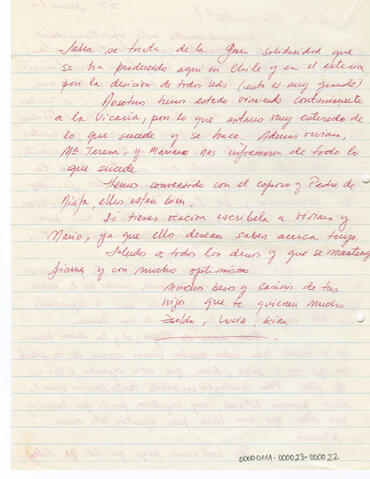 Saben se trata de la gran solidaridad que
se ha producido aquí en Chile y en el exterior
por la decisión de todos Uds (esta es muy grande)
Nosotras hemos estado viniendo continuamente
a la Vicaría, por lo que estamos muy enteradas de
lo que sucede y se hace. Además Viviana,
Mª Teresa, y Mariano nos informaron de todo lo
que sucede.
Hemos conversado con el esposo y Padre de
ellos estan bien.
Si tienes ocacion escribela a Viviana y
Mario, ya que ellos desean saber acerca tuyo.
Saludos a todos los demas y que se mantengan
firmes y con mucho optimismo.
Muchos besos y cariños de tus
hijas que te quieren mucho
Isolda, Lucia, Kira
0000011A-000023-000022